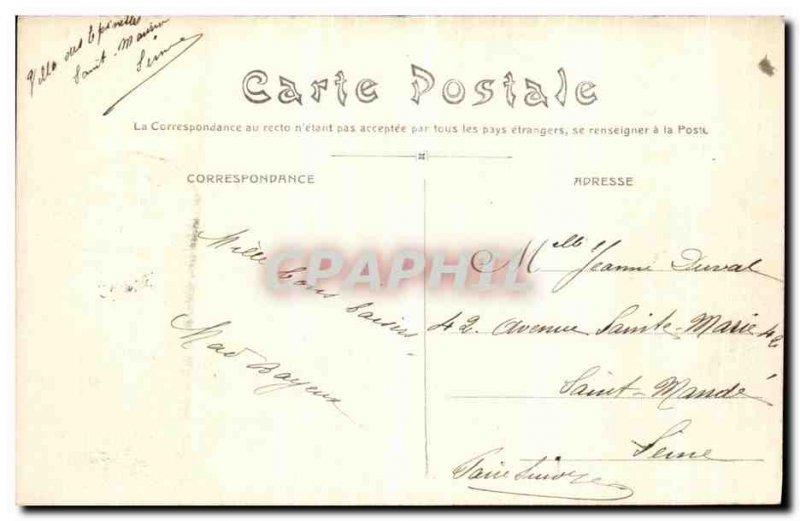 Villa des Epinettes
Saint-Maurice
Seine
Carte Postale
La Correspondance au recto n'étant pas acceptée par tous les pays étrangers, se renseigner à la Poste
CORRESPONDANCE
ADRESSE
Mille bons baisers
Mad Bayeux
Mlle Jeanne Duval
42. Avenue Sainte-Marie 42
Saint-Mandé
Seine
Faire suivre
CPAPHIL